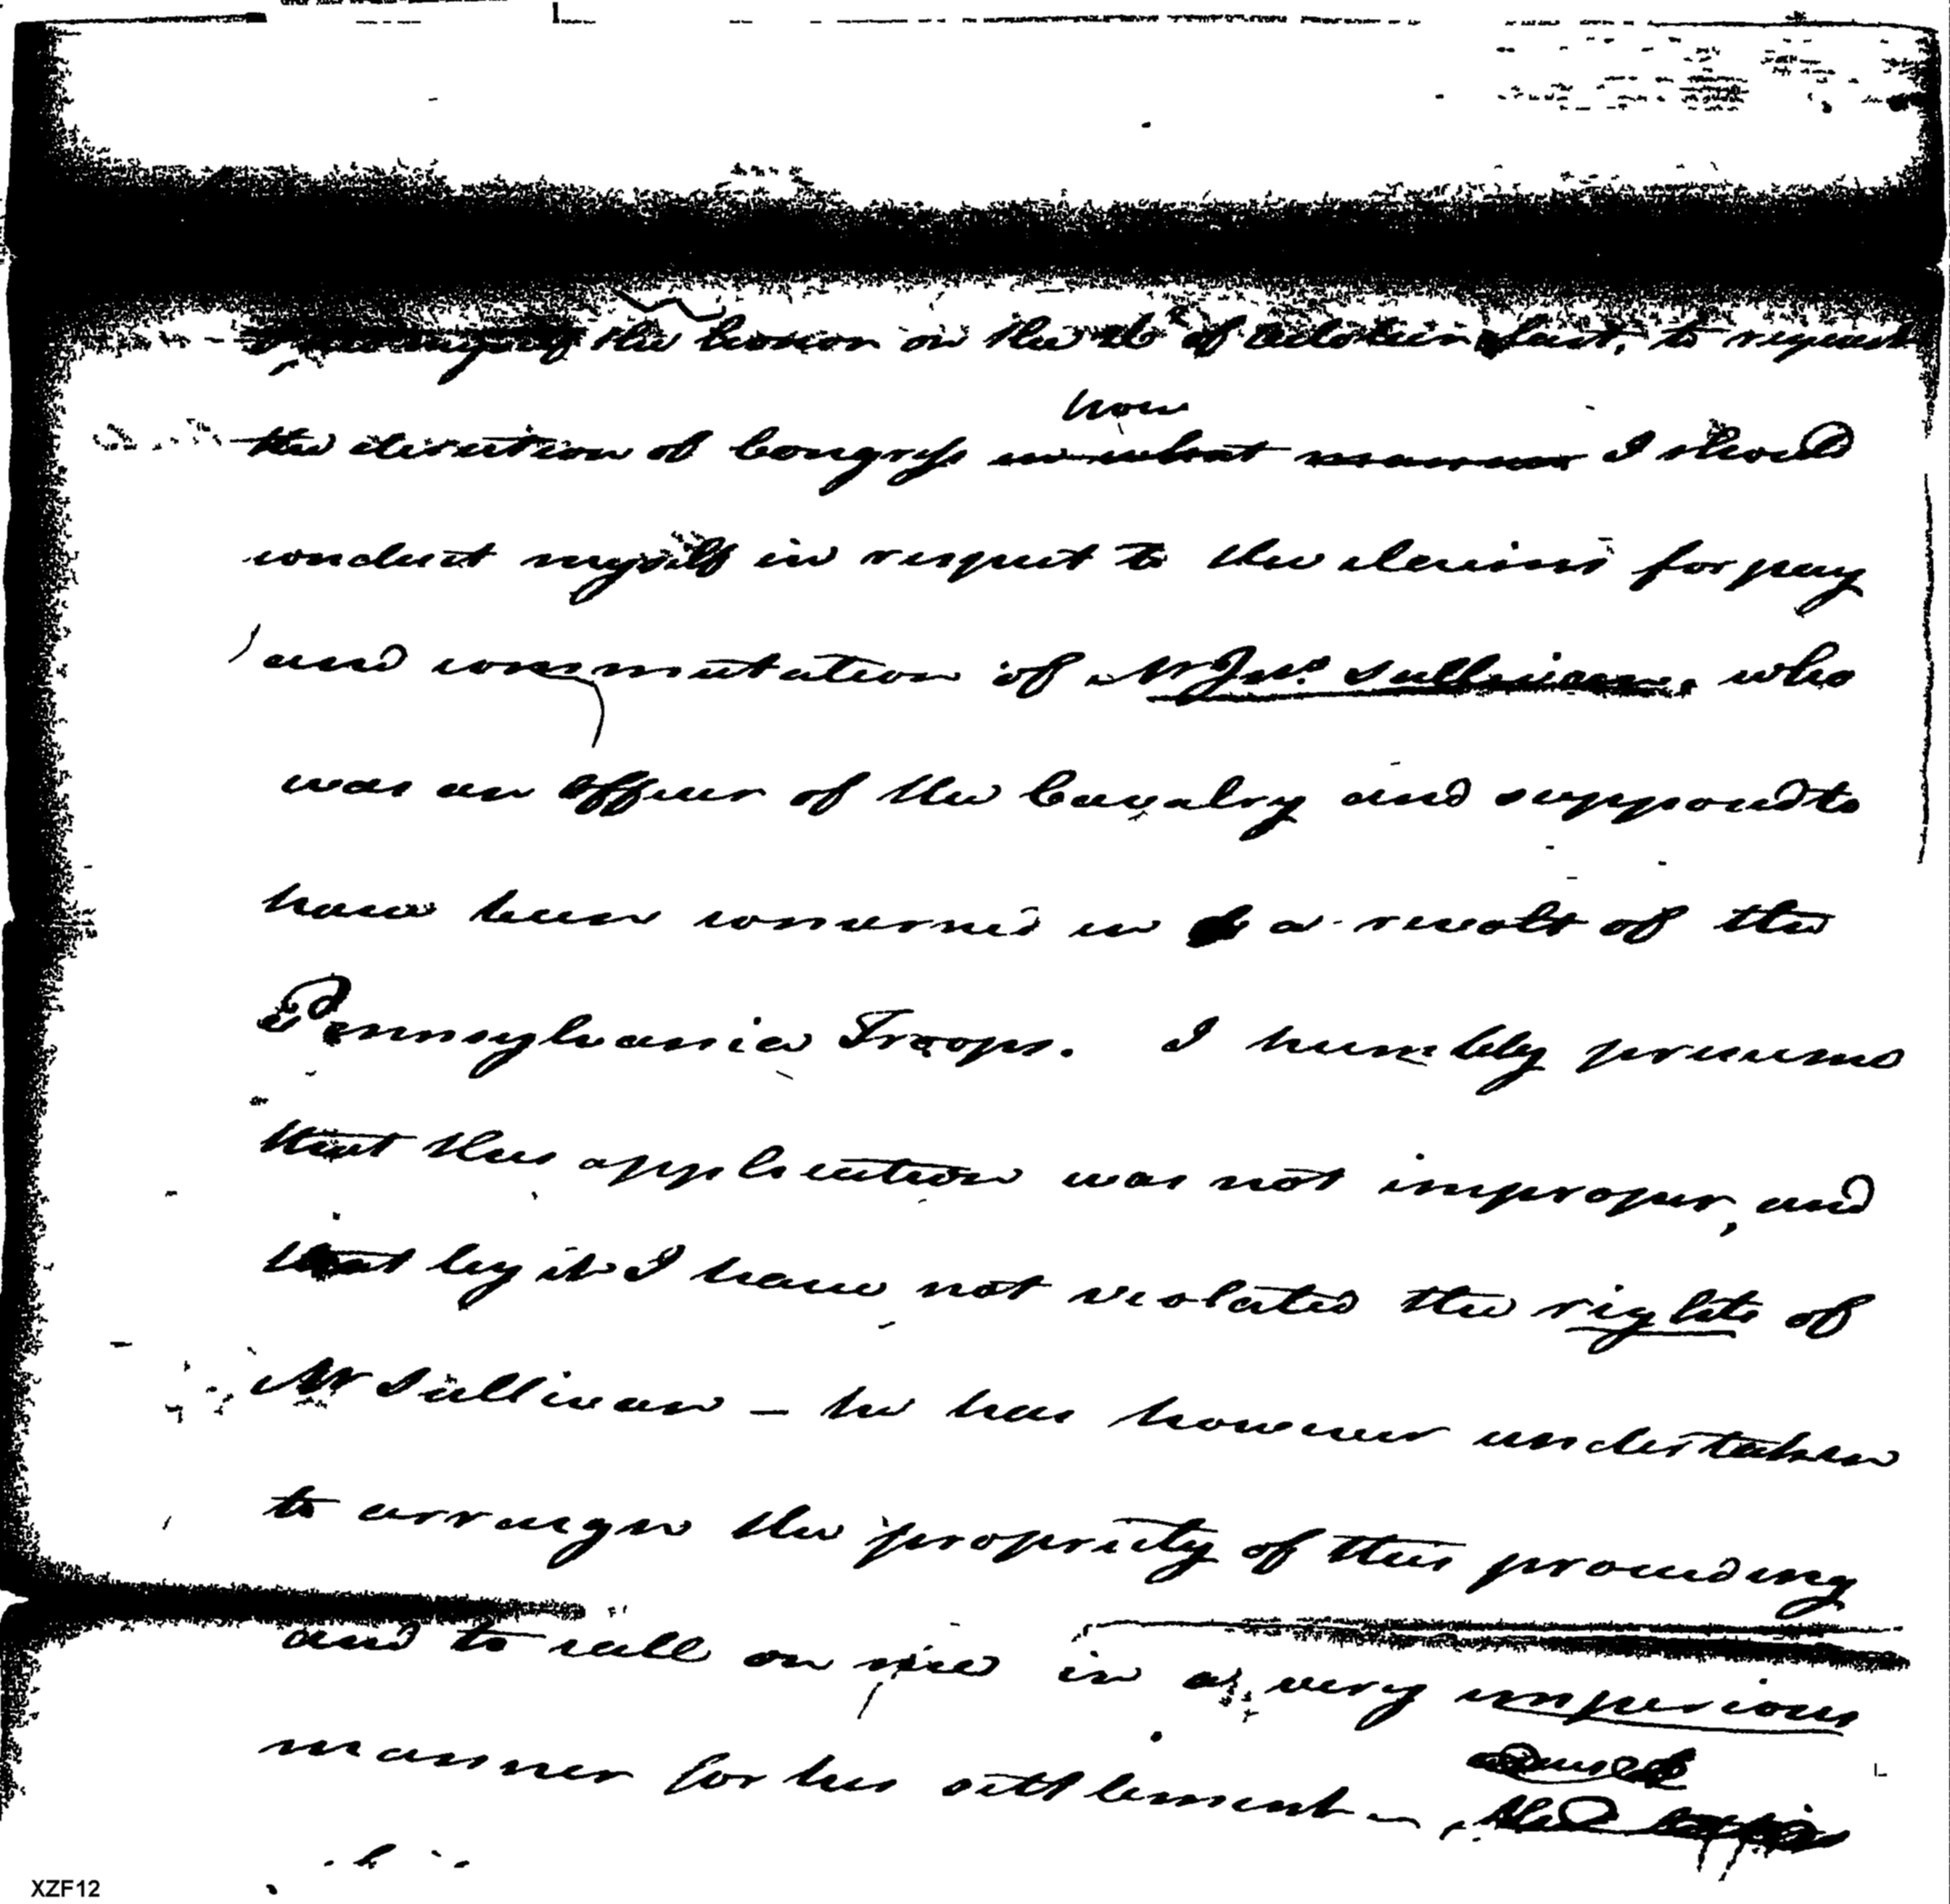 the honor on the of October last, to request
how
the direction of Congress in what manner I should
conduct myself in respect to the claims for pay
and commutation of Mr Jno. Sullivan, who
was an officer of the Cavalry and supposed to
have been concerned in a revolt of the
Pennsylvania Troops. I humbly presume
that this application was not improper, and
that by it I have not violated the rights of
Mr Sullivan – he has however undertaken
to arraign the propriety of this proceeding
and to call on me in a very imperious
manner for his settlement –
XZF12